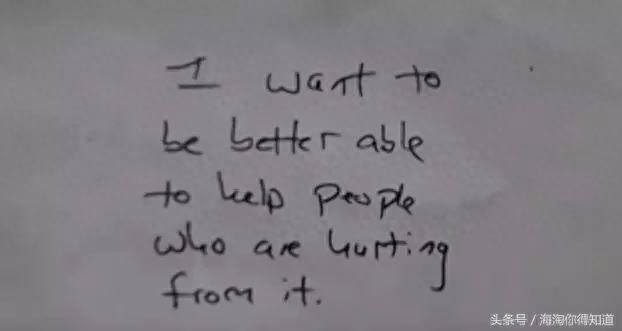 I want to
be better able
to help people
who are hurting
from it.
头条号 / 海淘你得知道